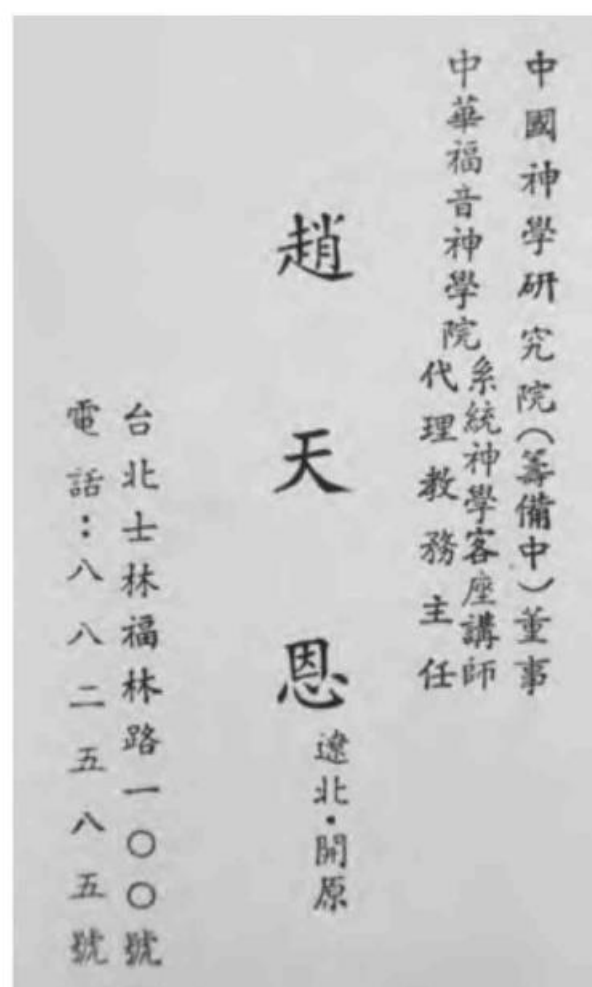 中國神學研究院(籌備中)董事
中華福音神學院
系統神學客座講師
代理教務主任
趙天恩
遼北・開原
台北士林福林路一〇〇號
電話:八八二五八五號